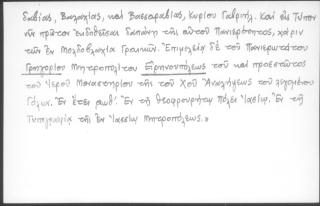 δαβίας, Βλαχίας, καὶ Βασσαραβίας, Κυρίου Γαβριήλ. Καὶ εἰς Τύπον
νῦν πρῶτον ἐκδοθεῖσαι δαπάνῃ τῆς αὐτοῦ Πανιερότητος, χάριν
τῶν ἐν Μολδοβλαχίᾳ Γραικῶν. Ἐπιμελείᾳ δὲ τοῦ Πανιερωτάτου
Γρηγορίου Μητροπολίτου Εἰρηνουπόλεως τοῦ καὶ προεστῶτος
τοῦ Ἱεροῦ Μοναστηρίου τῆς τοῦ Χοῦ Ἀναλήψεως τοῦ
Γόλια. Ἐν ἔτει αωθ΄. Ἐν τῇ θεοφρουρήτῳ πόλει Ἰασίῳ. Ἐν τῇ
Τυπογραφίᾳ τῆς ἐν Ἰασίῳ Μητροπόλεως.»